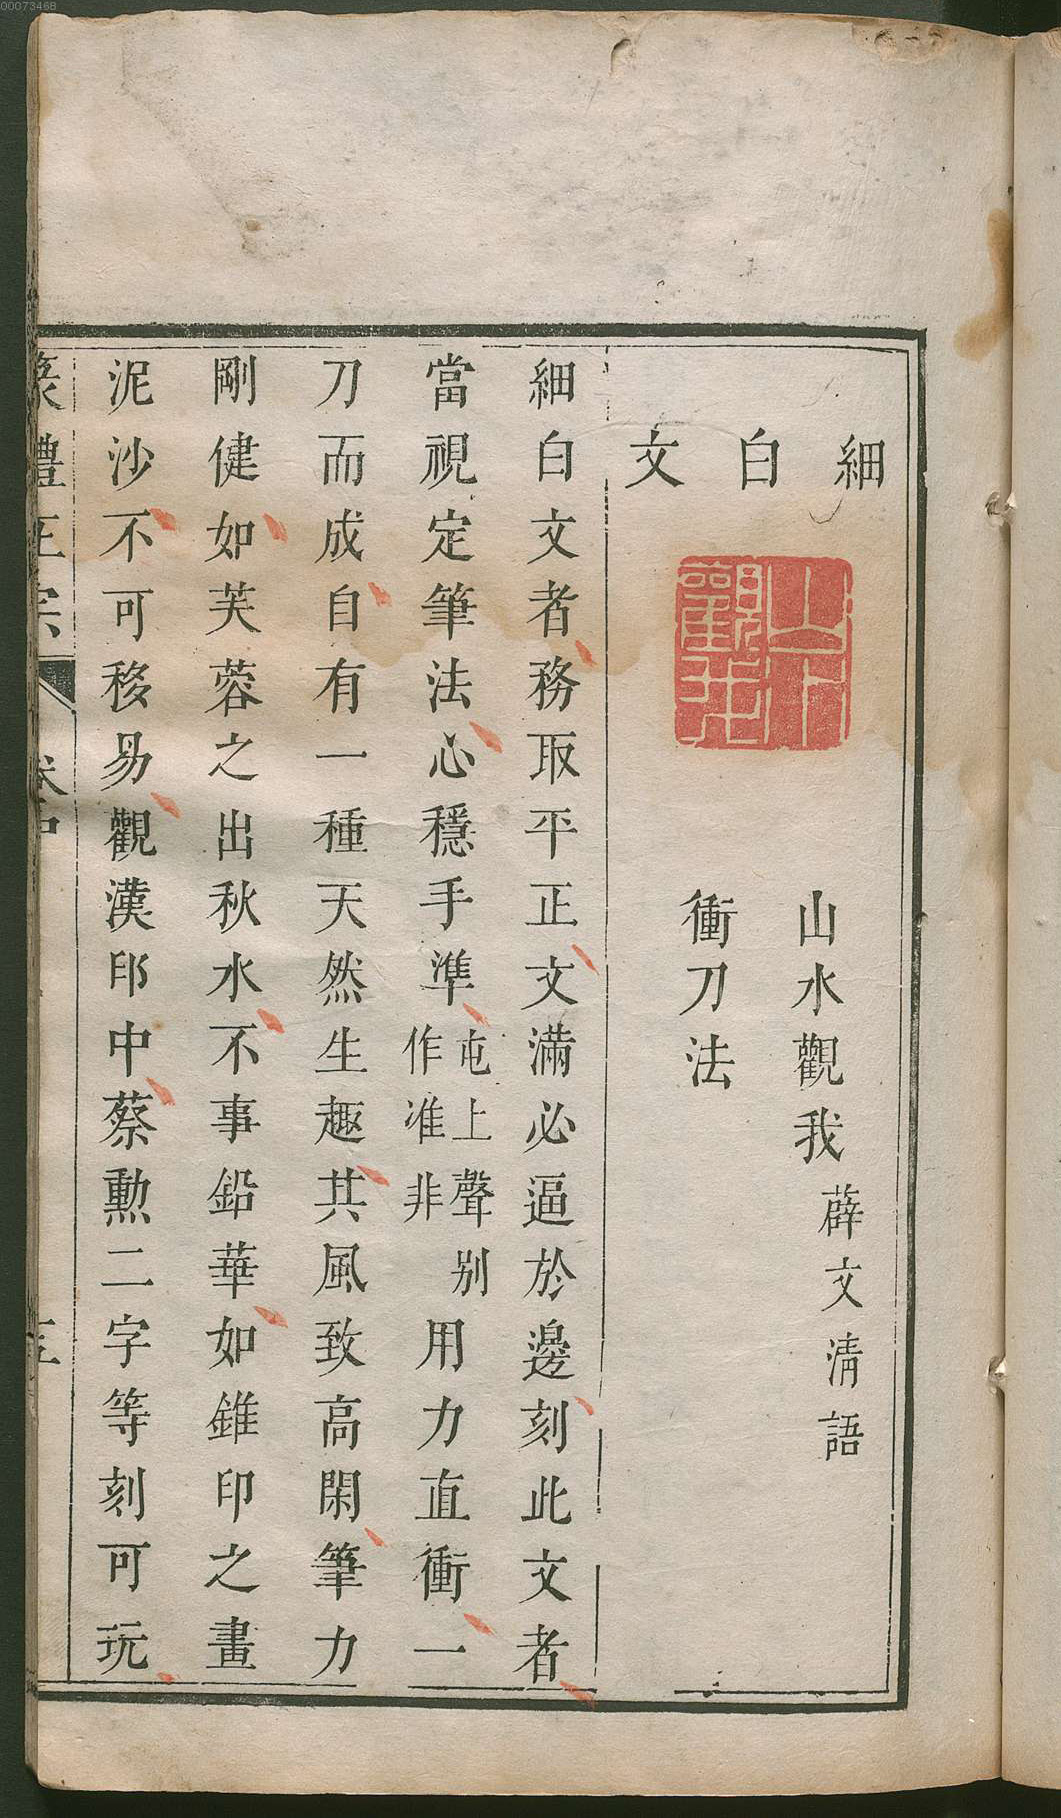 00073468
細白文
山水觀我薛文清語
衝刀法
細白文者務取平正文滿必逼於邊刻此文者
當視定筆法心穩手準屯上聲别作准非用力直衝一
刀而成自有一種天然生趣其風致高閑筆力
剛健如芙蓉之出秋水不事鉛華如錐印之畫
泥沙不可移易觀漢印中蔡勲二字等刻可玩